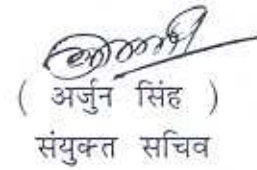 ( अर्जुन सिंह )
संयुक्त सचिव